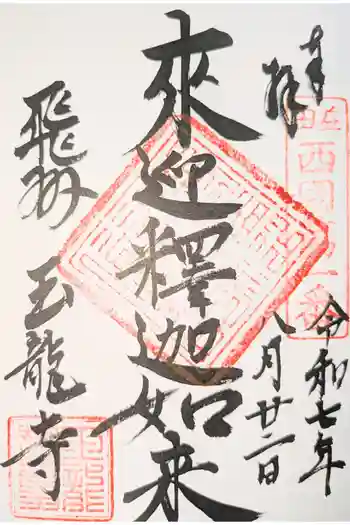 奉拝
西国
令和七年
八月廿二日
來迎釋迦如来
飛州 玉龍寺